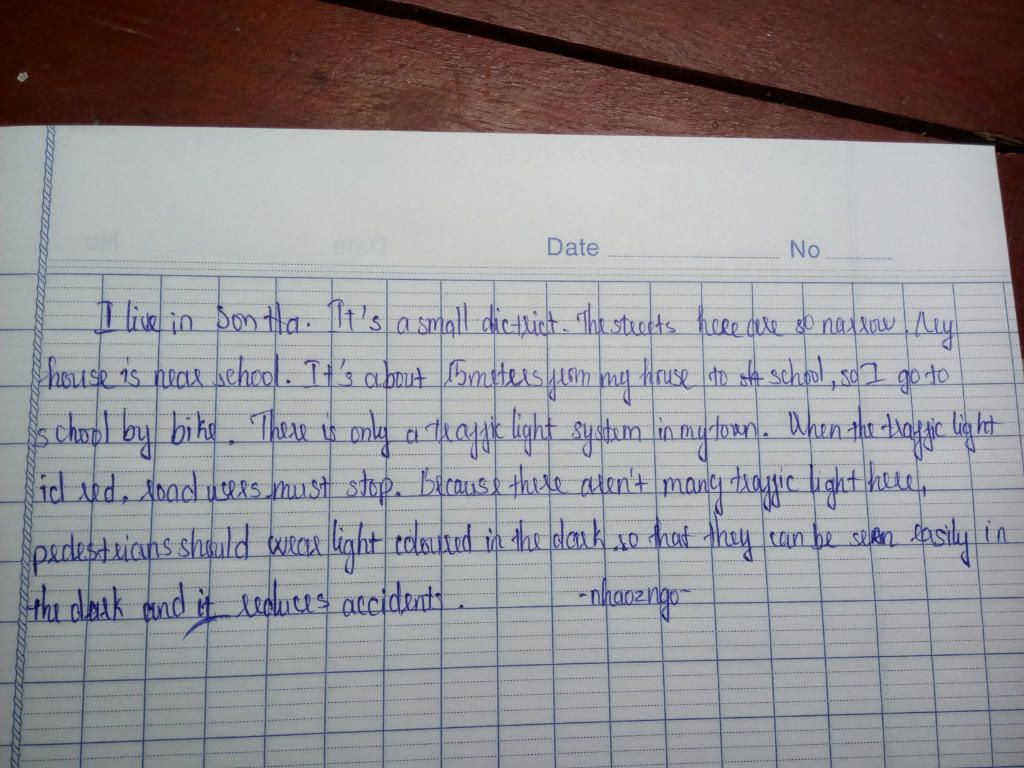 Date No
I live in Son Ha. It's a small dictrict. The streets here are so narrow. My
house is near school. It's about 15meters from my house to school, so I go to
school by bike. There is only a traffic light system in my town. When the traffic light
id red, road users must stop. Because there aren't many traffic light here,
pedestrians should wear light coloured in the dark so that they can be seen easily in
the dark and it reduces accidents.
-nhaozngo-